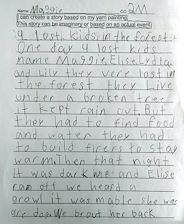 Name Maggie CC 2M
I can create a story based on my yarn painting.
This story can be imaginary or based on an actual event.
4 Lost kids in the forest
One day 4 lost kids
name Maggie Elise Lydia
and Lily they were lost in
the forest they Live
unter a broken tree
it kept rain out. But
they had to find food
and water they had
to build firers to stay
warm. Then that night
it was dark me and Elise
ran off we heard a
grawl it was mable she was
are dog. We braut her back